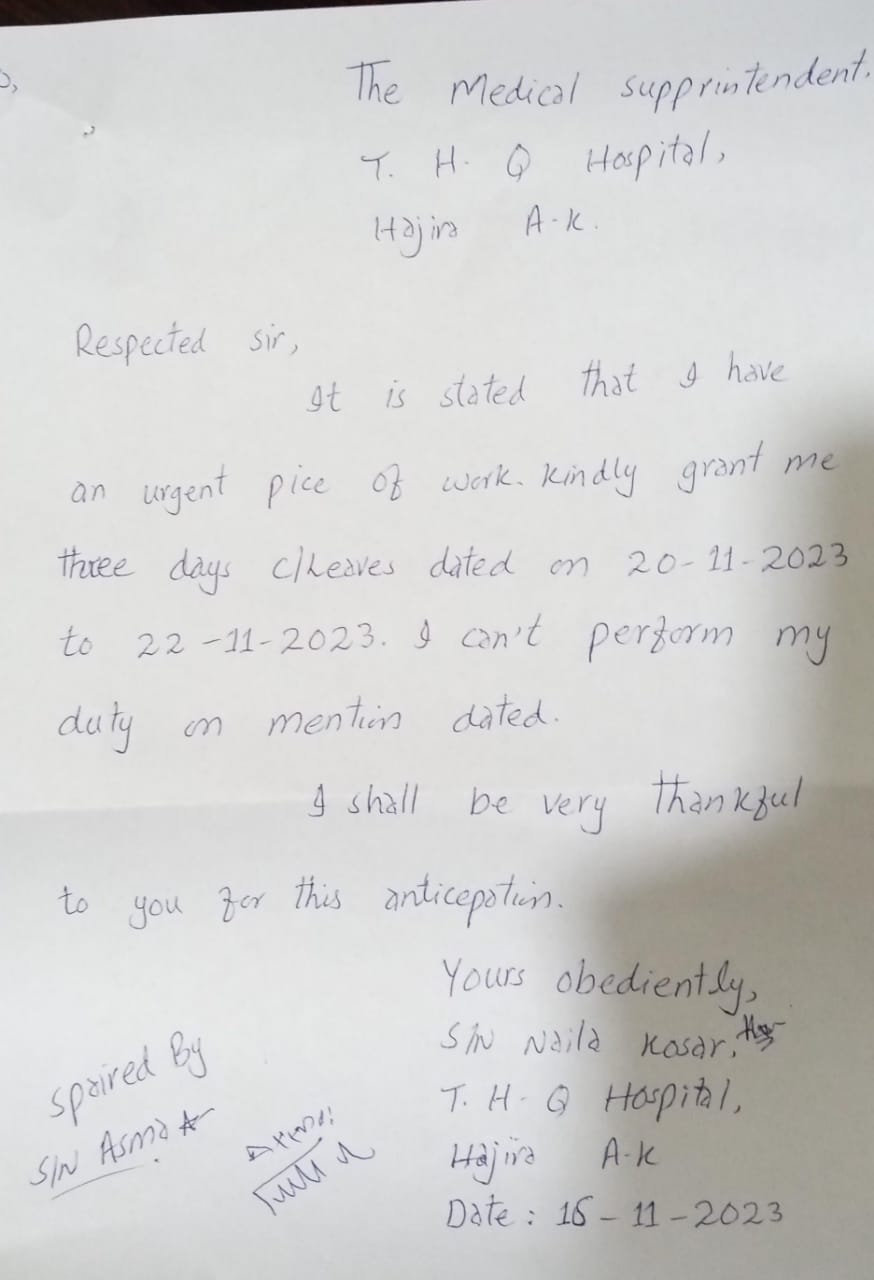 The Medical supprintendent.
T. H. Q Hospital,
Hajira A.K.
Respected sir,
It is stated that I have
an urgent pice of work. Kindly grant me
three days c/Leaves dated on 20-11-2023
to 22-11-2023. I can't perform my
duty on mention dated.
I shall be very thankful
to you for this anticepation.
Yours obediently,
S/N Naila Kosar.
T. H. Q Hospital,
Hajira A-K
Date: 16-11-2023
Spaired By
S/N Asma